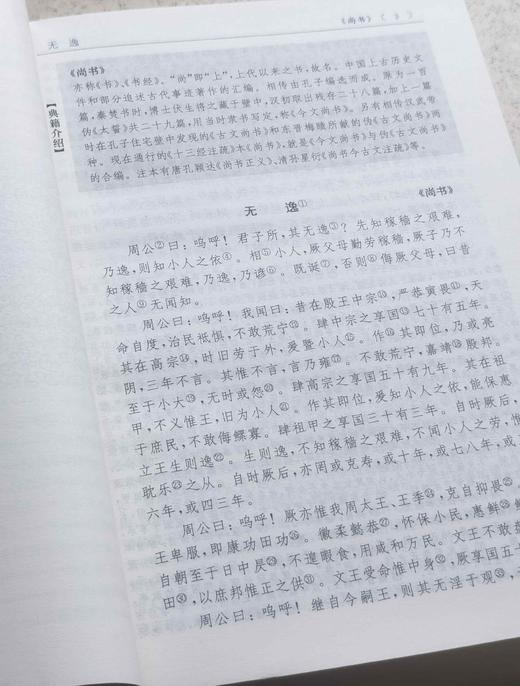 无　逸
《尚书》〔 3 〕
《尚书》
【典籍介绍】
亦称《书》、《书经》。“尚”即“上”，上代以来之书，故名。中国上古历史文
件和部分追述古代事迹著作的汇编。相传由孔子编选而成。原为一百
篇，秦焚书时，博士伏生将之藏于壁中，汉初取出残存二十八篇，加上一篇
伪《太誓》共二十九篇，用当时隶书写定，称《今文尚书》。另有相传汉武帝
时在孔子住宅壁中发现的《古文尚书》和东晋梅赜所献的伪《古文尚书》两
种。现在通行的《十三经注疏》本《尚书》，就是《今文尚书》与伪《古文尚书》
的合编。注本有唐孔颖达《尚书正义》、清孙星衍《尚书今古文注疏》等。
无　逸①
《尚书》
周公②曰：呜呼！君子所，其无逸③？先知稼穑之艰难，
乃逸，则知小人之依④。相⑤小人，厥父母勤劳稼穑，厥子乃不
知稼穑之艰难，乃逸，乃谚⑥。既诞⑦，否则⑧侮厥父母，曰昔
之人⑨无闻知。
周公曰：呜呼！我闻曰：昔在殷王中宗⑩，严恭寅畏⑪，天
命自度，治民祗惧，不敢荒宁⑫。肆中宗之享国⑬七十有五年。
其在高宗⑭，时旧劳于外，爰暨小人⑮。作⑯其即位，乃或亮
阴，三年不言。其惟不言，言乃雍⑰。不敢荒宁，嘉靖⑱殷邦。
至于小大⑲，无时或怨⑳。肆高宗之享国五十有九年。其在祖
甲，不义惟王，旧为小人㉑。作其即位，爰知小人之依，能保惠
于庶民，不敢侮鳏寡。肆祖甲之享国三十有三年。自时厥后，
立王生则逸㉒。生则逸，不知稼穑之艰难，不闻小人之劳，惟
耽乐㉓之从。自时厥后，亦罔或克寿，或十年，或七八年，或五
六年，或四三年。
周公曰：呜呼！厥亦惟我周太王、王季㉔，克自抑畏㉕。
王卑服，即康功田功㉖。徽柔懿恭㉗，怀保小民，惠鲜㉘
自朝至于日中昃㉙，不遑暇食，用咸和万民。文王不敢盘
田㉚，以庶邦惟正之供㉛。文王受命惟中身㉜，厥享国五十
周公曰：呜呼！继自今嗣王，则其无淫于观㉝、